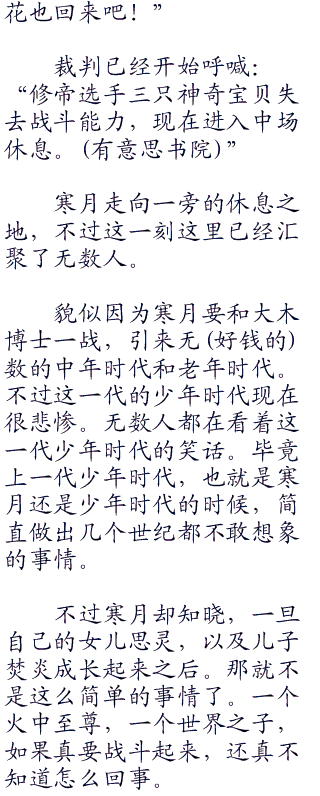 花也回来吧！”
裁判已经开始呼喊：
“修帝选手三只神奇宝贝失
去战斗能力，现在进入中场
休息。(有意思书院)”
寒月走向一旁的休息之
地，不过这一刻这里已经汇
聚了无数人。
貌似因为寒月要和大木
博士一战，引来无(好钱的)
数的中年时代和老年时代。
不过这一代的少年时代现在
很悲惨。无数人都在看着这
一代少年时代的笑话。毕竟
上一代少年时代，也就是寒
月还是少年时代的时候，简
直做出几个世纪都不敢想象
的事情。
不过寒月却知晓，一旦
自己的女儿思灵，以及儿子
焚炎成长起来之后。那就不
是这么简单的事情了。一个
火中至尊，一个世界之子，
如果真要战斗起来，还真不
知道怎么回事。